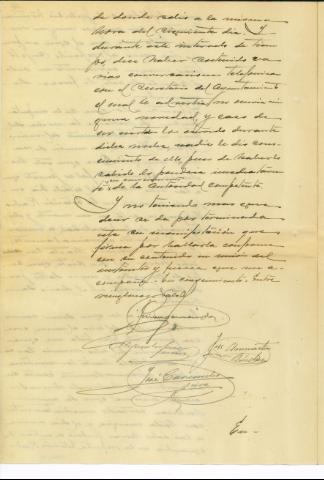 de donde salio a la misma
hora del siguiente dia. Y
durante este intervalo de tiem-
po, dice haber sostenido va-
rias conversaciones telefonicas
con el Secretario del Ayuntamiento
el cual le advertia no ocurria nin-
guna novedad, y caso de
ser cierto lo ocurrido durante
dicha noche nadie le dio cono-
cimiento de ello, pues de haberlo
sabido lo pondria inmediatamen-
te en conocimiento de la autoridad competente.
Y no teniendo mas que
decir se da por terminada
esta su manifestación que
firma por hallarla conforme
con su contenido en union del
instructor y pareja que me a-
compaña. En cinguimiento. Entre
José
En-